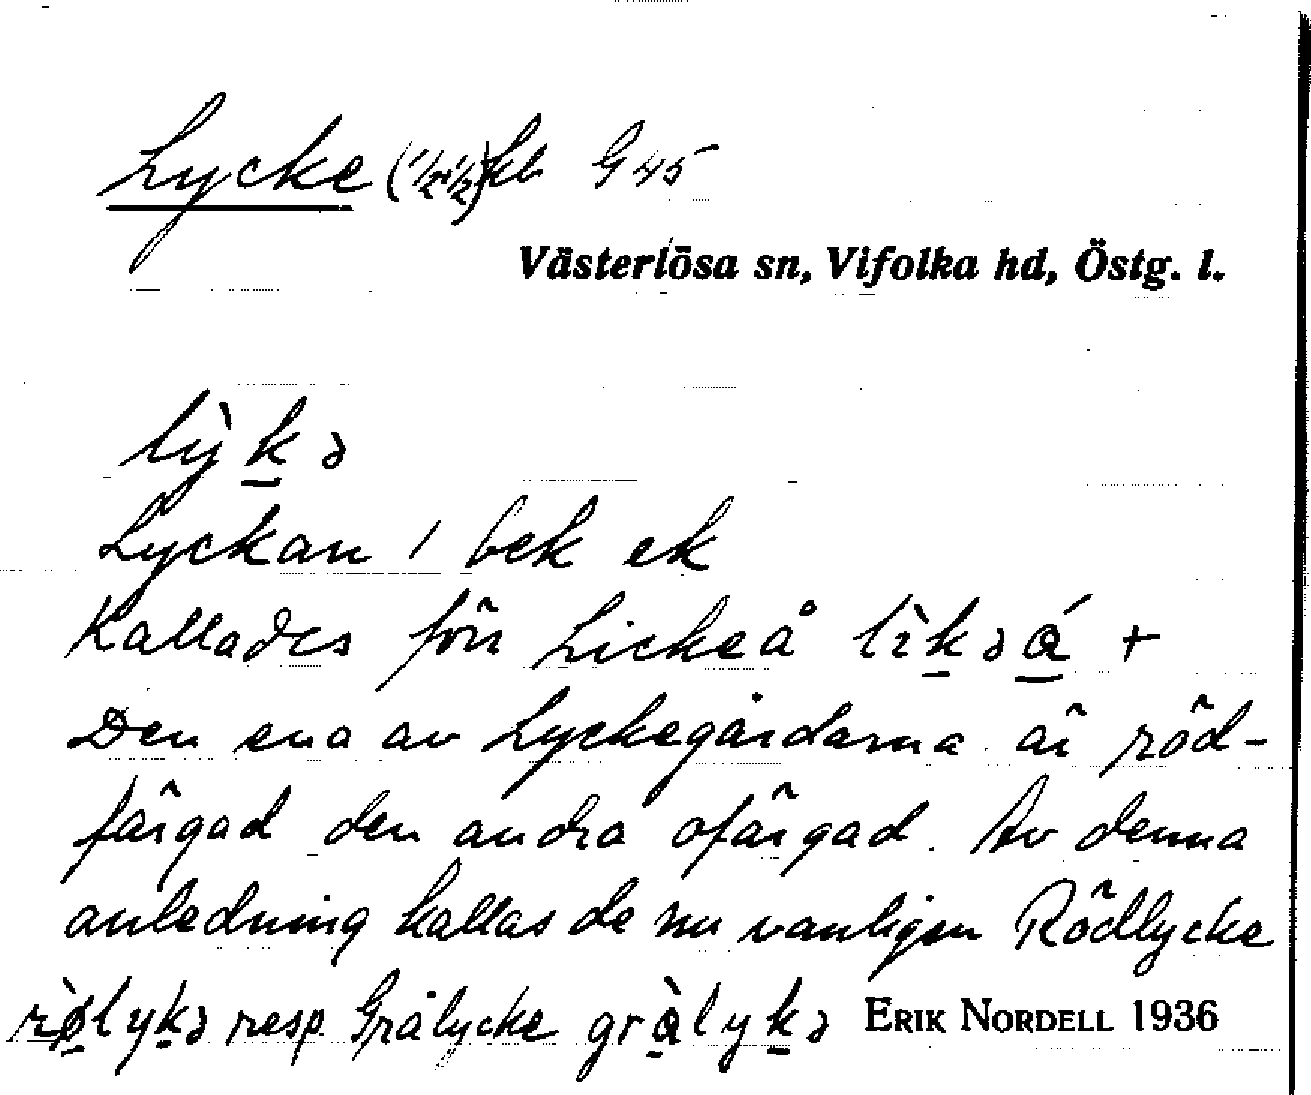 Lycke (½, ½) kb G 45
Västerlösa sn, Vifolka hd, Östg. l.
lỳkə
Lyckan 1 bek ek
Kallades förr Lickeå lìkəǻ +
Den ena av Lyckegårdarna är röd-
färgad den andra ofärgad. Av denna
anledning kallas de nu vanligen Rödlycke
rø̀lykə resp. Grålycke grålykə ERIK NORDELL 1936